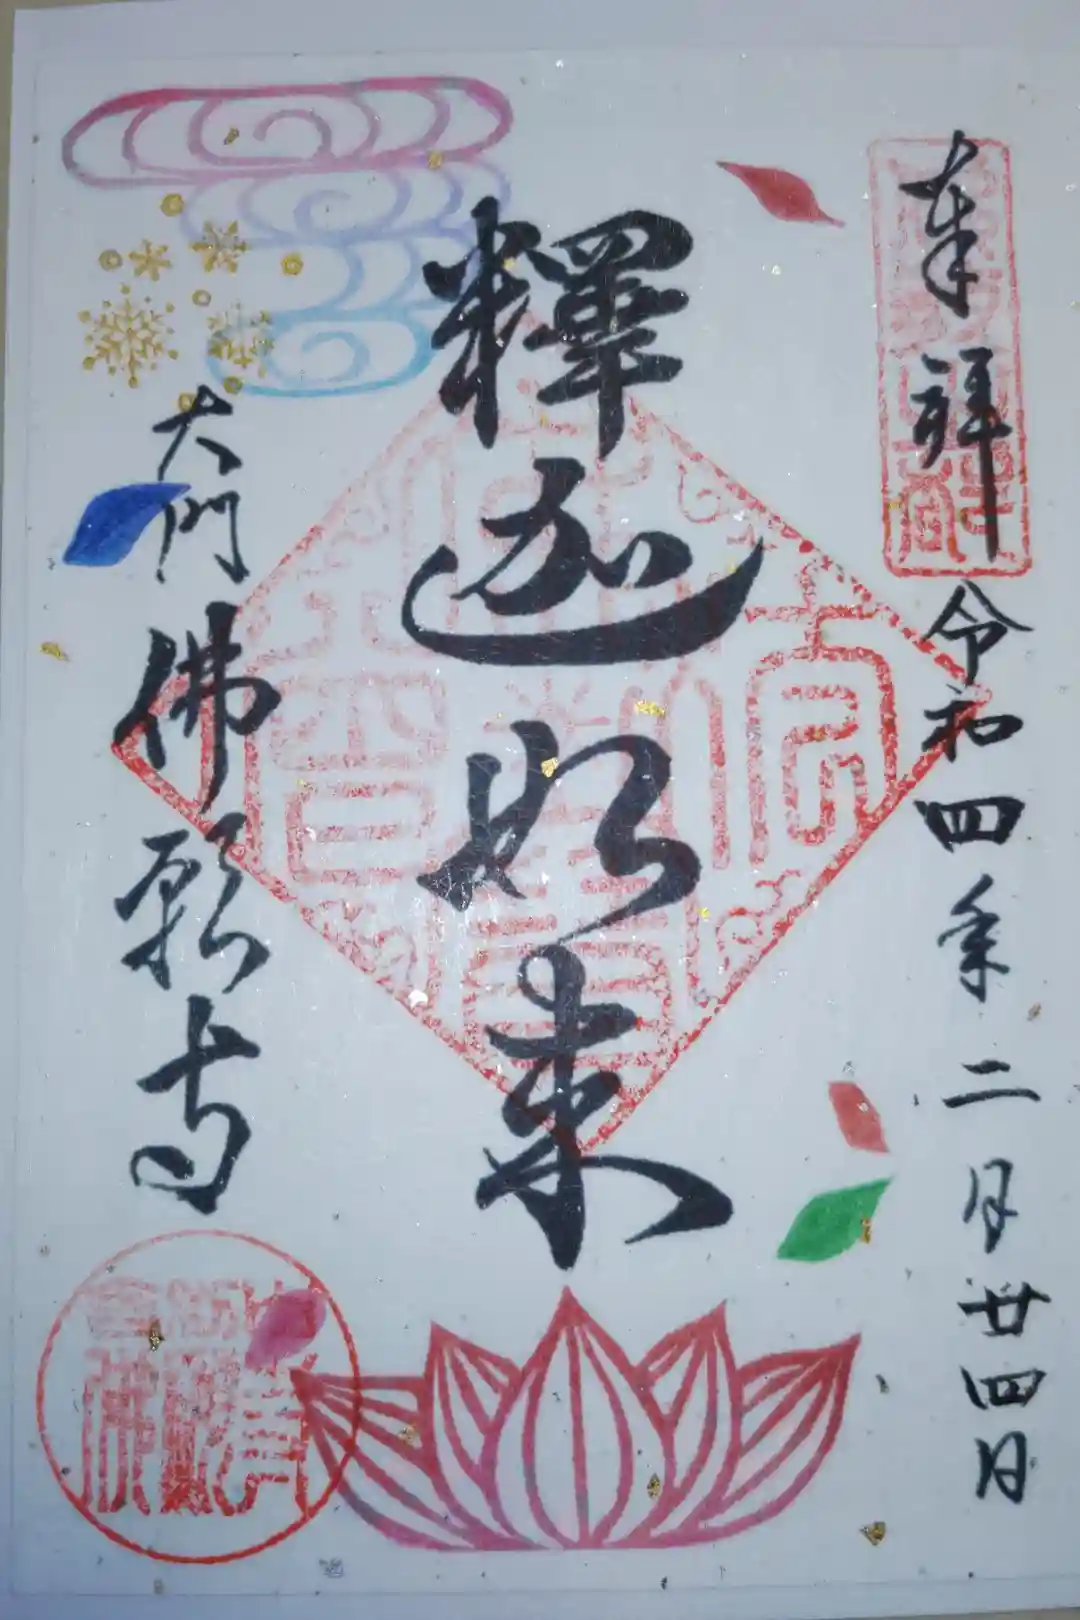 奉拝 令和四年二月廿四日
釋迦如来
大門 佛願寺